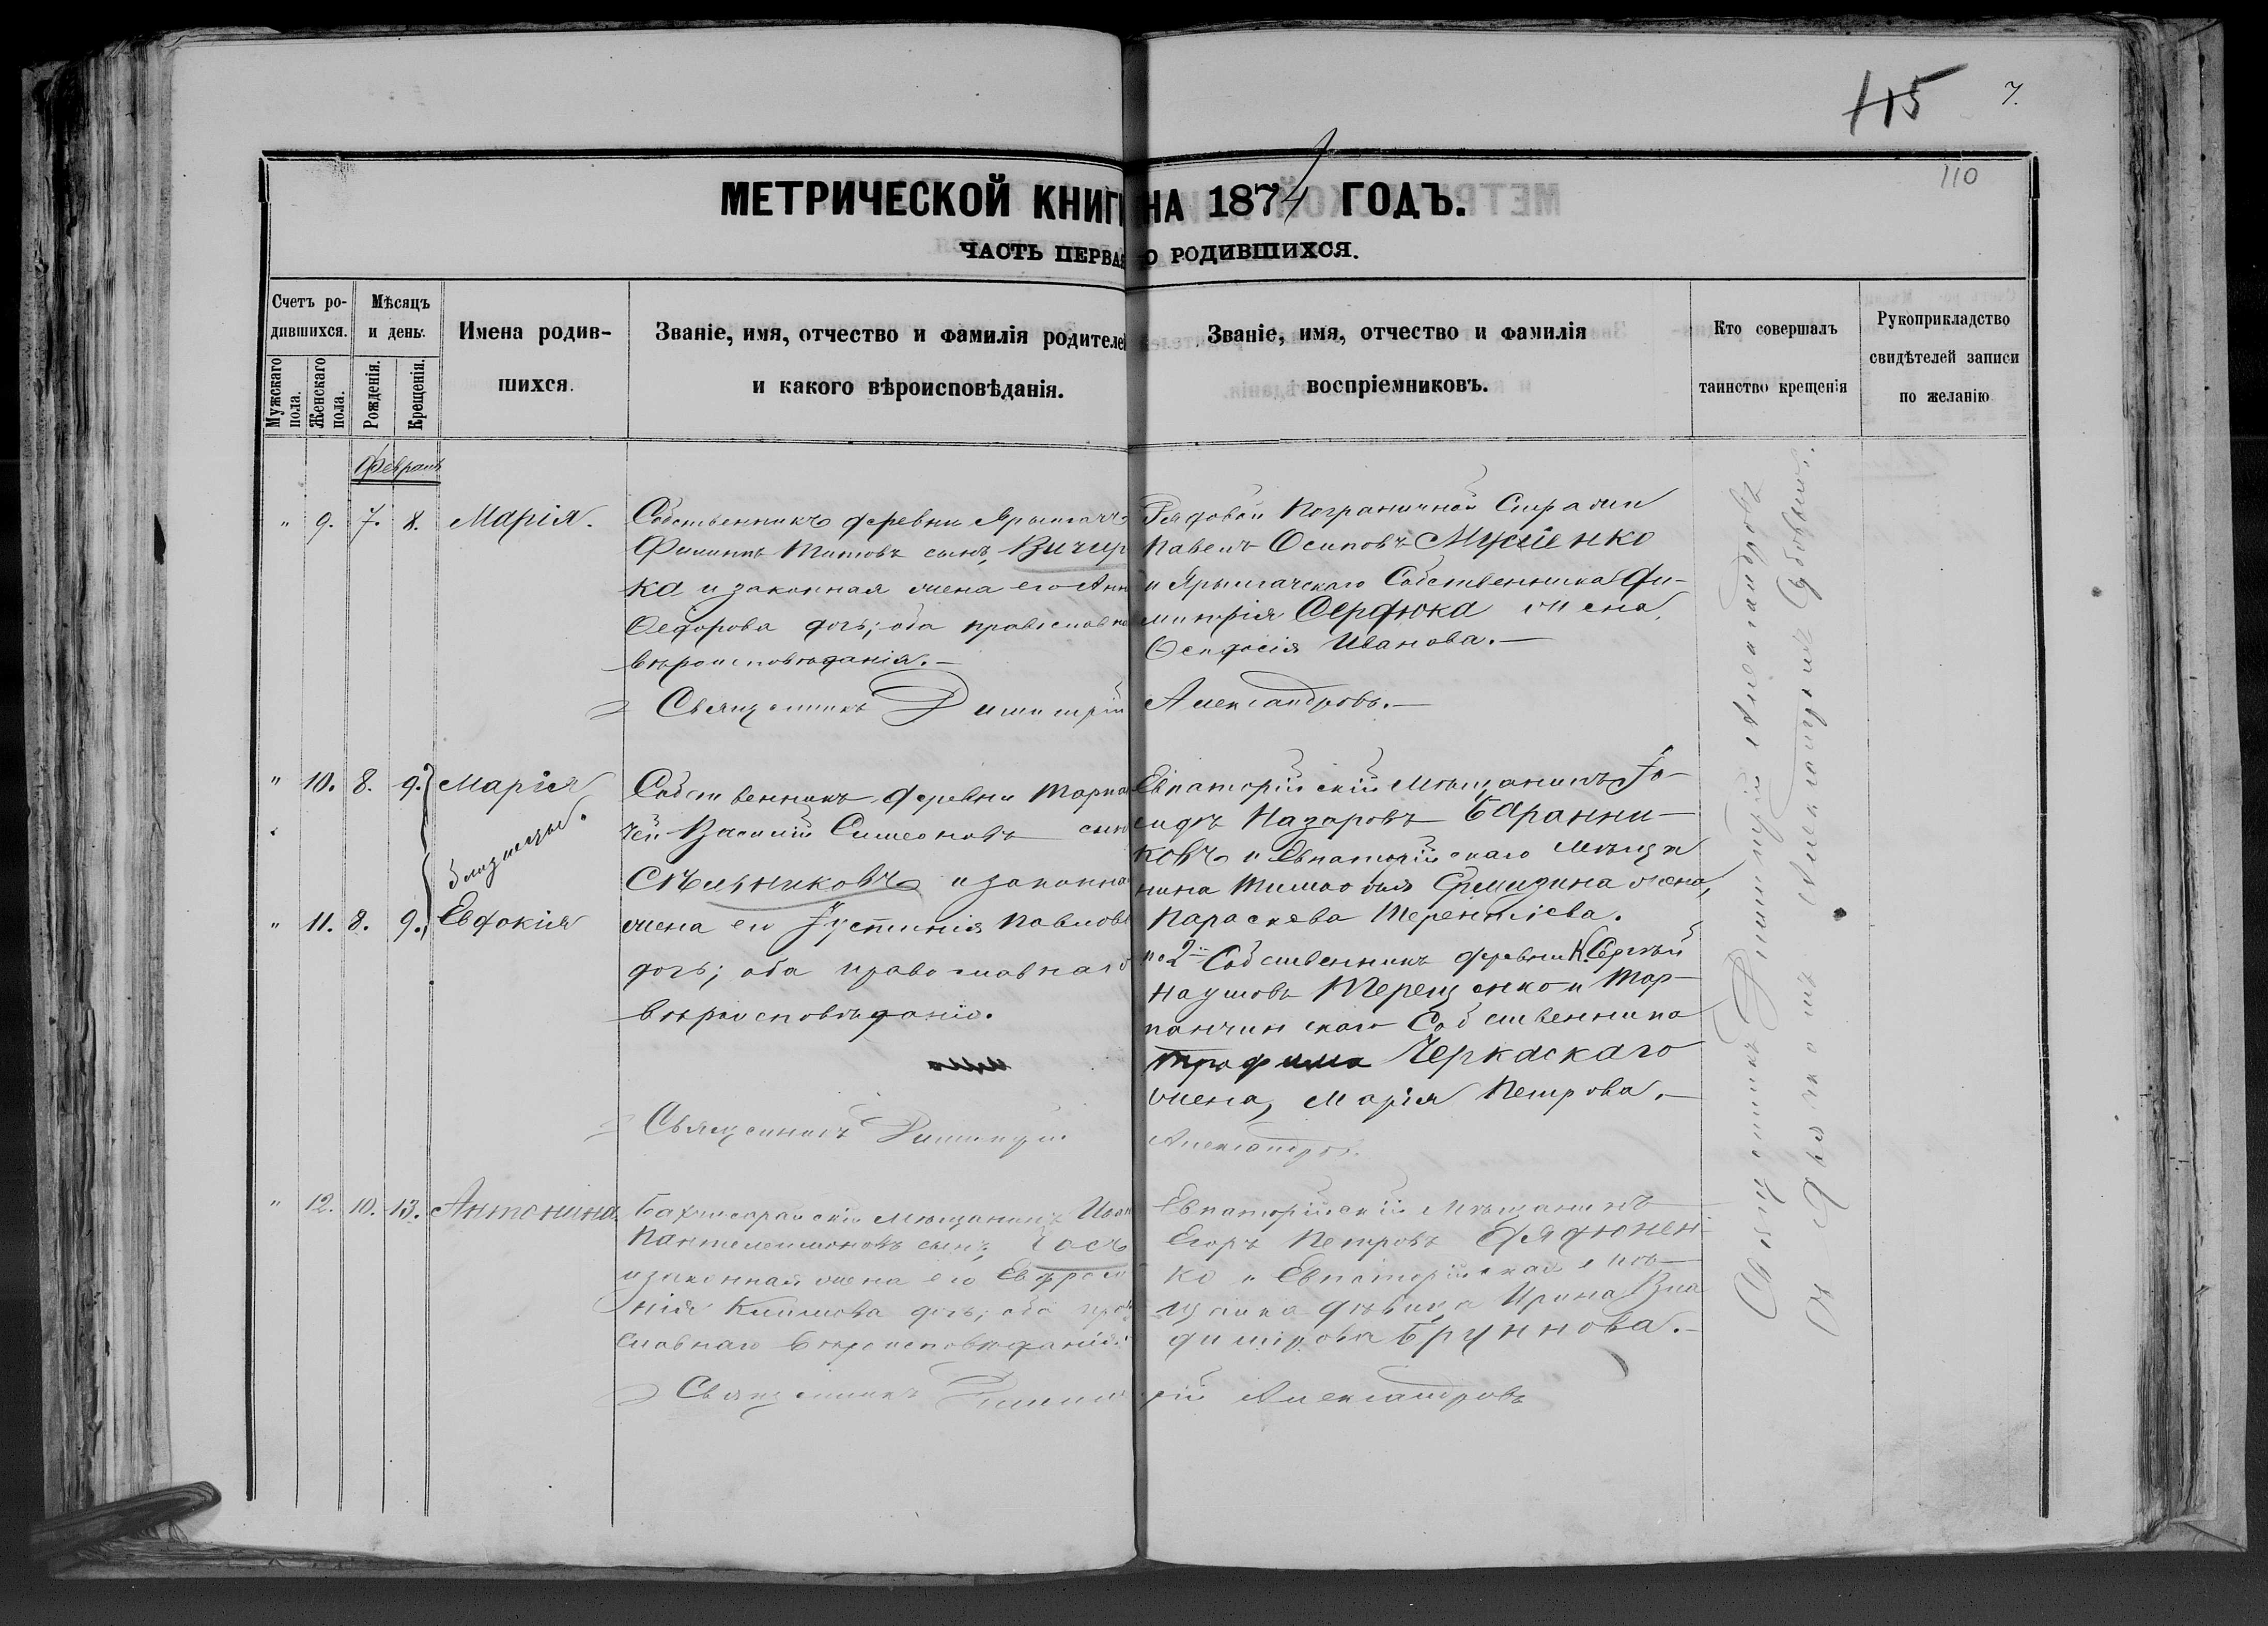 115 7.
110
МЕТРИЧЕСКОЙ КНИГИ НА 1874 ГОДЪ.
ЧАСТЬ ПЕРВАЯ О РОДИВШИХСЯ.
Счетъ родившихся.
Мужскаго пола.
Женскаго пола.
Мѣсяцъ и день.
Рожденія.
Крещенія.
Имена родив-
шихся.
Званіе, имя, отчество и фамилія родителей
и какого вѣроисповѣданія.
Званіе, имя, отчество и фамилія
воспріемниковъ.
Кто совершалъ
таинство крещенія
Рукоприкладство
свидѣтелей записи
по желанію
Февраль
" 9. 7. 8. Марія.
Собственникъ деревни Ярылгачъ
Филиппъ Титовъ сынъ, Вичир
ка и законная жена его Анн
Ѳедорова дочь; оба православна
вѣроисповѣданія.—
Рядовой Пограничной Стражи
Павелъ Осиповъ Мусіенко
и Ярылгачскаго Собственника Ди-
митрія Сердюка жена,
Ѳеодосія Иванова.—
Священникъ Димитрій Александровъ.—
" 10. 8. 9. Марія
близнецы.
" 11. 8. 9. Евдокія
Собственникъ деревни Тарпан
чи Василій Симеоновъ сынъ
Сѣльниковъ и законна
жена его Іустинія Павлова
дочь; оба православнаго
вѣроисповѣданія.
Евпаторійскій Мѣщанинъ
Назаровъ Баранни-
ковъ и Евпаторійскаго Мѣща
нина Тимоѳея жена,
Параскева Терентіева.
по 2й Собственникъ деревни К. Сергѣй
Наумовъ Терещенко и Тар-
панчинскаго Собственника
Трофима Черкаскаго
жена, Марія Петрова.—
Священникъ Димитрій Александровъ.
" 12. 10. 13. Антонина.
Бахчисарайскій Мѣщанинъ Иоан
Пантелеимоновъ сынъ,
и законная жена его Евфроси
нія Климова дочь; оба пра
славнаго вѣроисповѣданія.
Евпаторійскій Мѣщанинъ
Егоръ Петровъ
ко и Евпаторійская мѣ-
щанка дѣвица Ирина Вла
димірова Бруннова.—
Священникъ Димитрій Александровъ
Священникъ Димитрій Александровъ
съ Дьячкомъ Александромъ